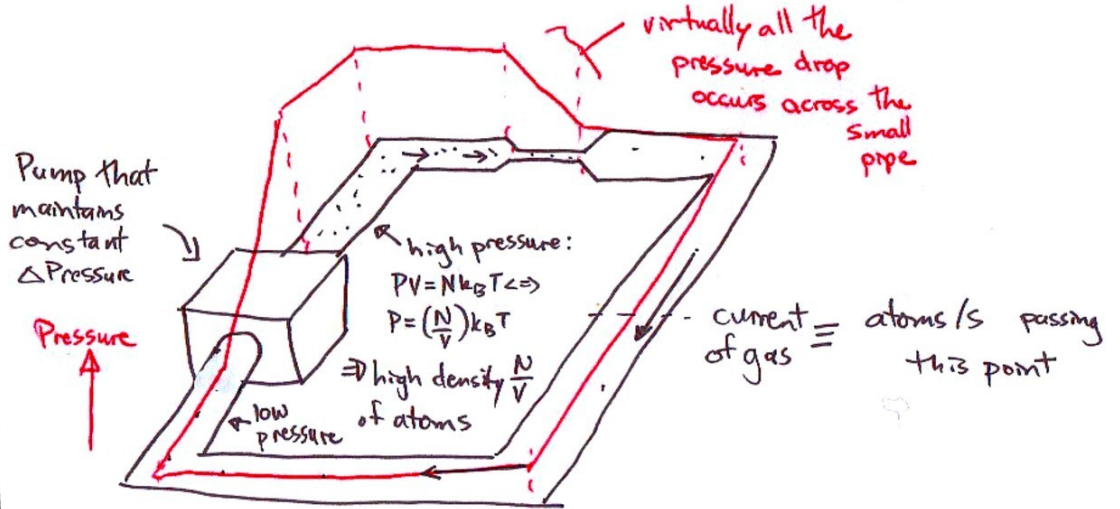 virtually all the
pressure drop
occurs across the
small
pipe
Pump that
maintains
constant
△Pressure
high pressure:
PV=Nk_BT<=>
P=(N/V)k_BT
=> high density N/V
of atoms
Pressure
low
pressure
current
of gas
≡
atoms/s passing
this point